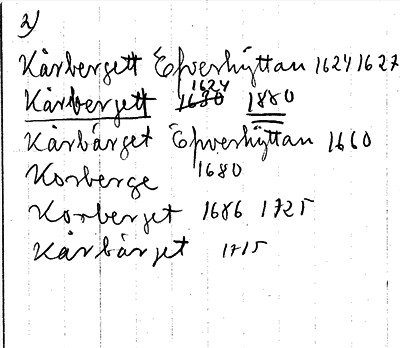 2)
Kårbergett Epverhÿttan 1624 1627
1624
Kårbergett 1630 1880
Kårbärget Epverhÿttan 1660
Korberge 1680
Korberget 1686 1725
Kårbärget 1715